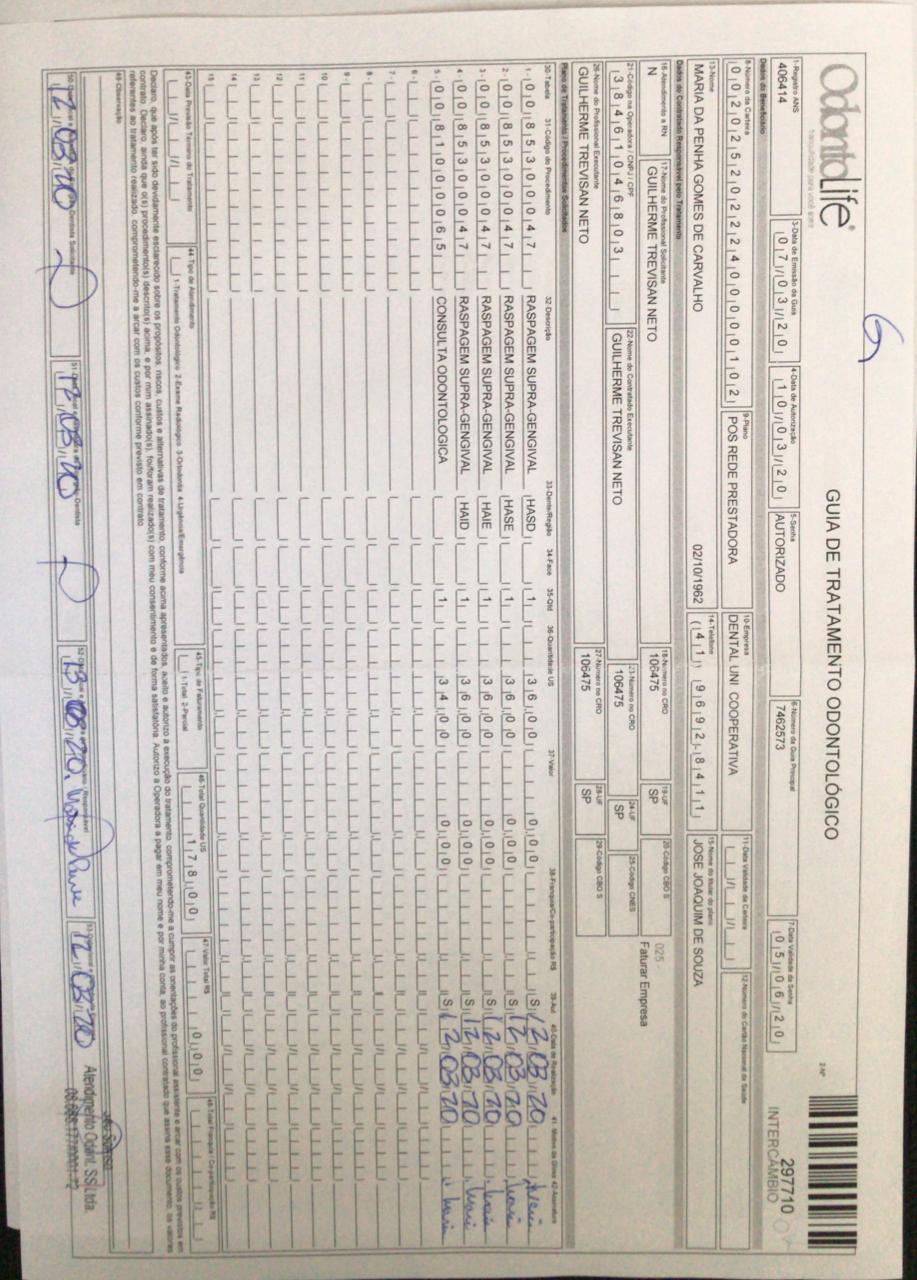 OdontoLife®
tranquilidade para você sorrir
GUIA DE TRATAMENTO ODONTOLÓGICO
2-Nº
297710
INTERCÂMBIO
6
1-Registro ANS
406414
3-Data de Emissão da Guia
07/03/20
4-Data de Autorização
10/03/20
5-Senha
AUTORIZADO
6-Número da Guia Principal
7462573
7-Data Validade da Senha
05/06/20
Dados do Beneficiário
8-Número da Carteira
00202520224000000102
9-Plano
POS REDE PRESTADORA
10-Empresa
DENTAL UNI COOPERATIVA
11-Data Validade da Carteira
12-Número do Cartão Nacional de Saúde
13-Nome
MARIA DA PENHA GOMES DE CARVALHO
02/10/1962
14-Telefone
(41) 9692-8411
15-Nome do titular do plano
JOSE JOAQUIM DE SOUZA
Dados do Contratado Responsável pelo Tratamento
16-Atendimento a RN
N
17-Nome do Profissional Solicitante
GUILHERME TREVISAN NETO
18-Número no CRO
106475
19-UF
SP
20-Código CBO S
025
Faturar Empresa
21-Código na Operadora / CNPJ / CPF
38461046803
22-Nome do Contratado Executante
GUILHERME TREVISAN NETO
23-Número no CRO
106475
24-UF
SP
25-Código CNES
26-Nome do Profissional Executante
GUILHERME TREVISAN NETO
27-Número no CRO
106475
28-UF
SP
29-Código CBO S
Plano de Tratamento / Procedimentos Solicitados
30-Tabela 31-Código do Procedimento 32-Descrição 33-Dente/Região 34-Face 35-Qtd 36-Quantidade US 37-Valor 38-Franquia/Co-participação R$ 39-Aut 40-Data de Realização 41-Motivo da Glosa 42-Assinatura
1- 00 85300047 RASPAGEM SUPRA-GENGIVAL HASD 1 36,00 0,00 S 12/03/20
2- 00 85300047 RASPAGEM SUPRA-GENGIVAL HASE 1 36,00 0,00 S 12/03/20
3- 00 85300047 RASPAGEM SUPRA-GENGIVAL HAIE 1 36,00 0,00 S 12/03/20
4- 00 85300047 RASPAGEM SUPRA-GENGIVAL HAID 1 36,00 0,00 S 12/03/20
5- 00 81000065 CONSULTA ODONTOLOGICA 1 34,00 0,00 S 12/03/20
6-
7-
8-
9-
10
11
12
13
14
15
43-Data Previsão Término do Tratamento
44-Tipo de Atendimento
1-Tratamento Odontológico 2-Exame Radiológico 3-Ortodontia 4-Urgência/Emergência
45-Tipo de Faturamento
1-Total 2-Parcial
46-Total Quantidade US
178,00
47-Valor Total R$
0,00
48-Total Franquia / Co-participação R$
Declaro, que após ter sido devidamente esclarecido sobre os propósitos, riscos, custos e alternativas de tratamento, conforme acima apresentados, aceito e autorizo a execução do tratamento, comprometendo-me a cumprir as orientações do profissional assistente e arcar com os custos previstos em
contrato. Declaro, ainda que o(s) procedimento(s) descrito(s) acima, e por mim assinado(s), foi/foram realizado(s) com meu consentimento e de forma satisfatória. Autorizo a Operadora a pagar em meu nome e por minha conta, ao profissional contratado que assina esse documento, os valores
referentes ao tratamento realizado, comprometendo-me a arcar com os custos conforme previsto em contrato.
49-Observação
12/03/20
12/03/20
13/03/20
12/03/20
Atendimento Odont. SS Ltda.